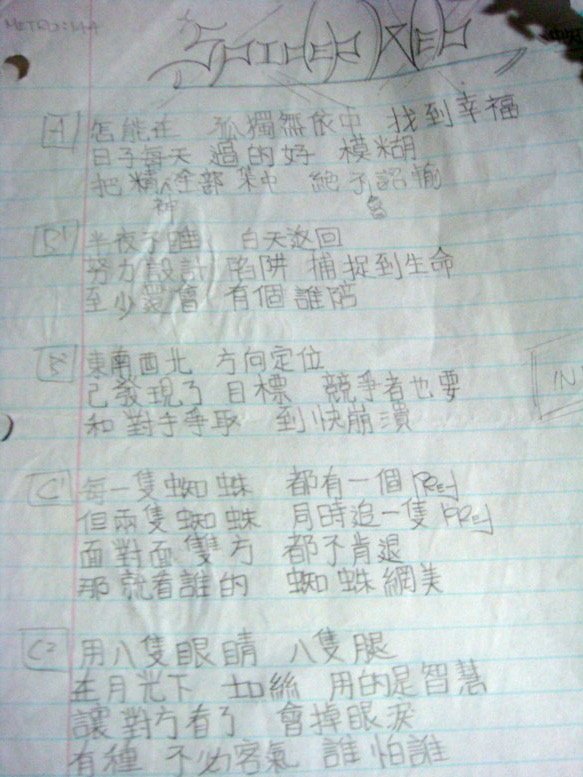 A 怎能在 孤獨無依中 找到幸福
日子每天 過的好 模糊
把精神全部 集中 絕不 輸
B1 半夜不睡 白天返回
努力設計 陷阱 捕捉到生命
至少還會 有個誰陪
B2 東南西北 方向定位
己發現了 目標 競爭者也要
和對手爭取 到快崩潰
C1 每一隻蜘蛛 都有一個「PREY」
但兩隻蜘蛛 同時追一隻「PREY」
面對面 雙方 都不肯退
那就看誰的 蜘蛛網美
C2 用八隻眼睛 八隻腿
在月光下 加絲 用的是智慧
讓對方看了 會掉眼淚
有種 不必客氣 誰怕誰